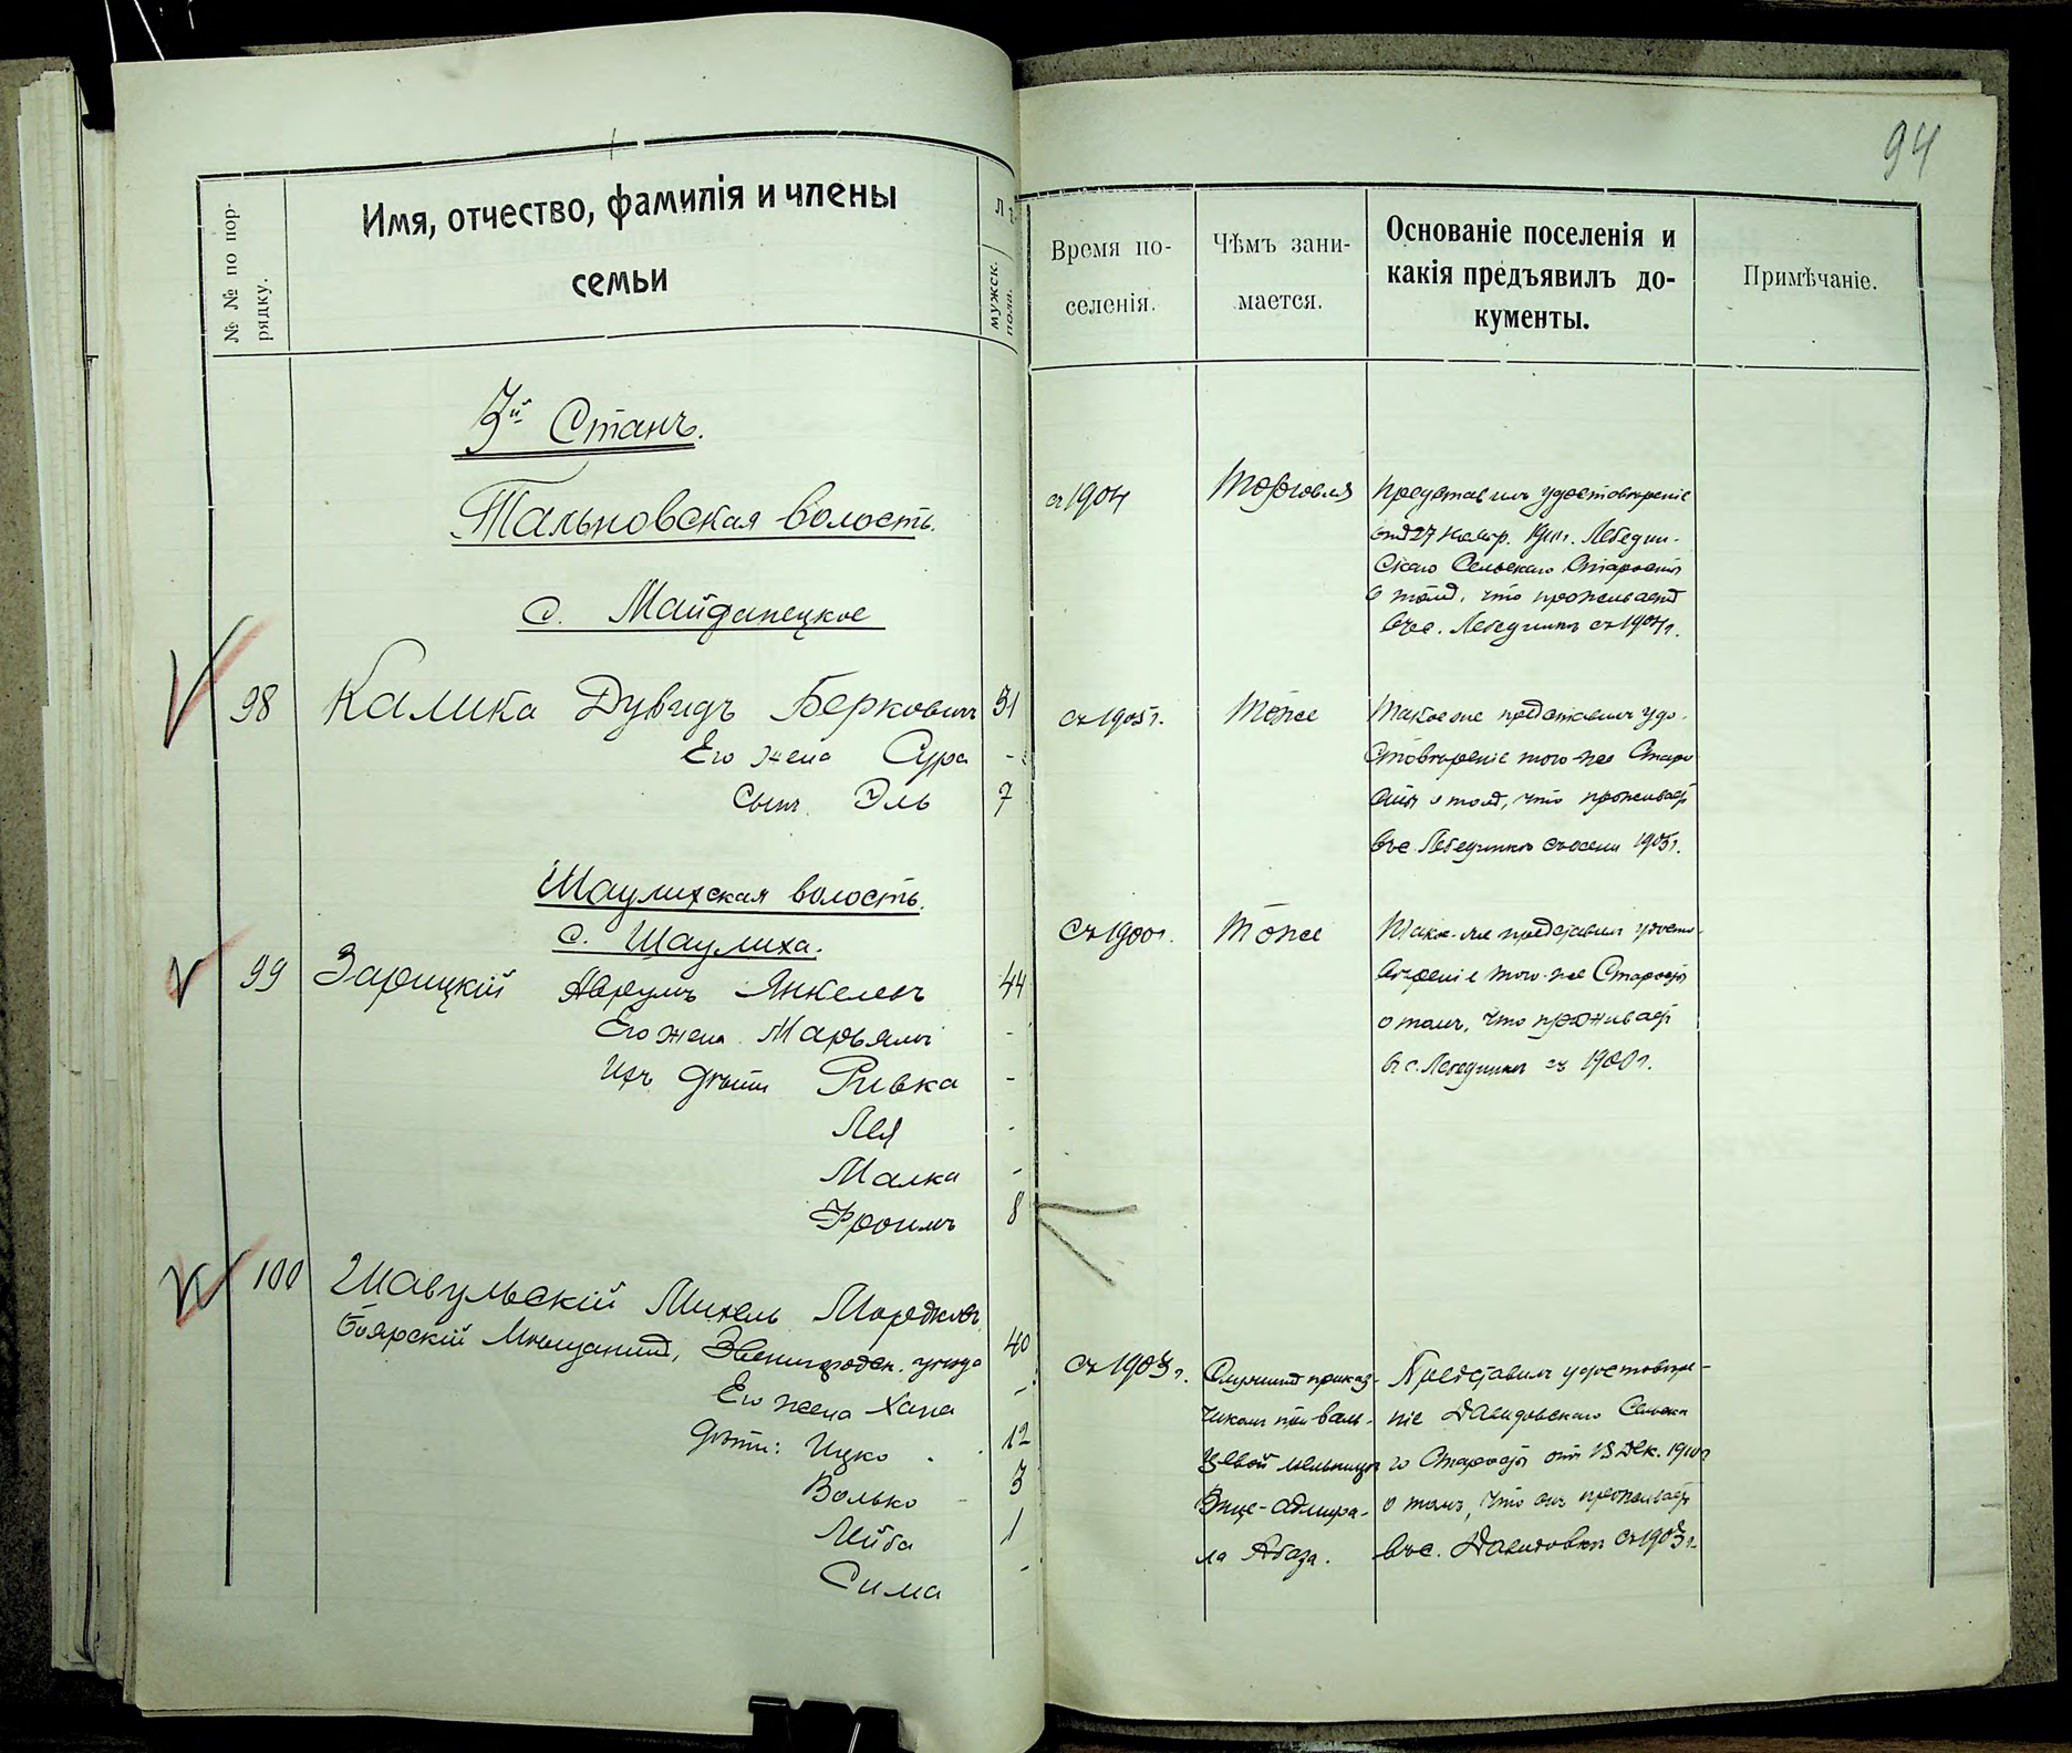 № № по пор-
рядку.
Имя, отчество, фамилія и члены
семьи
мужск.
пола.
3й Станъ.
Тальновская волость.
с. Майданецкое
98 Калика Дувидъ Берковичъ 31
Его жена Сура -
Сынъ Эль 7
Шаулихская волость.
с. Шаулиха.
99 Зарицкій Аврумъ Янкелевъ 44
Его жена Марьямъ -
Ихъ дѣти Ривка -
Лея -
Малка -
Фроимъ 8
100 Шавульскій Михель Мордковъ
Боярскій мѣщанинъ, Звенигородск. уѣзда 40
Его жена Хана -
Дѣти: Ицко 12
Волько 3
Лейба 1
Сима -
94
Время по-
селенія.
Чѣмъ зани-
мается.
Основаніе поселенія и
какія предъявилъ до-
кументы.
Примѣчаніе.
съ 1904
Торговля
Представилъ удостовѣреніе
отъ 27 Лебедин-
скаго Сельскаго Старосты
о томъ, что проживаетъ
въ с. Лебединкѣ съ 1904 г.
съ 1905 г.
Тоже
Такое же представилъ удо-
стовѣреніе того-же Старо
сты о томъ, что проживаетъ
въ с. Лебединкѣ съ осени 1905 г.
съ 1900 г.
Тоже
Такое-же представилъ удосто-
вѣреніе того-же Старосты
о томъ, что проживаетъ
въ с. Лебединкѣ съ 1900 г.
съ 1903 г.
Служитъ приказ-
чикомъ при валь-
цевой мельницѣ
Вице-адмира-
ла Абаза.
Представилъ удостовѣре-
ніе Давидовскаго Сельска
го Старосты отъ 13 Дек. 1910 г
о томъ, что онъ проживаетъ
въ с. Давидовкѣ съ 1903 г.